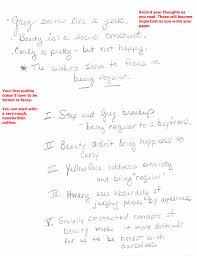 Record your thoughts as
you read. These will become
important as you write your
paper.
- Greg seems like a jerk.
- Beauty is a social construct.
- Carly is pretty - but not happy.
* The writers seem to focus on
being regular.
Your first outline
doesn't have to be
formal or fancy.
You can start with
a very rough,
handwritten
outline.
I. Step and Greg breakup
- being regular to a boyfriend.
II. Beauty didn't bring happiness to
Carly
III. Yellow Face address ethnicity
and being "regular"
IV. Hwang uses absurdity of
judging people by appearances
V. Socially constructed concepts of
beauty make it more difficult
for us to be honest with
ourselves.